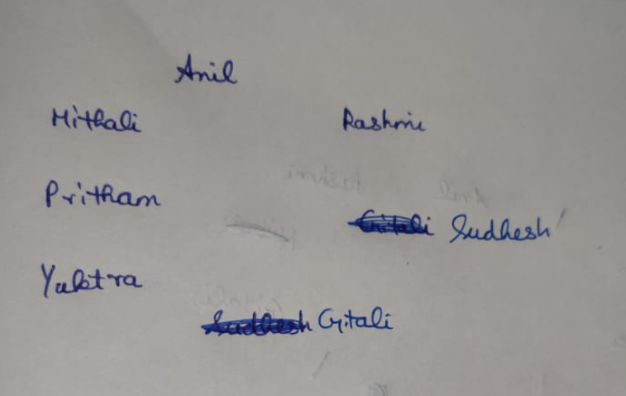 Anil
Mithali Rashmi
Pritham
Gitali Sudhesh
Yuktra
Sudhesh Gitali